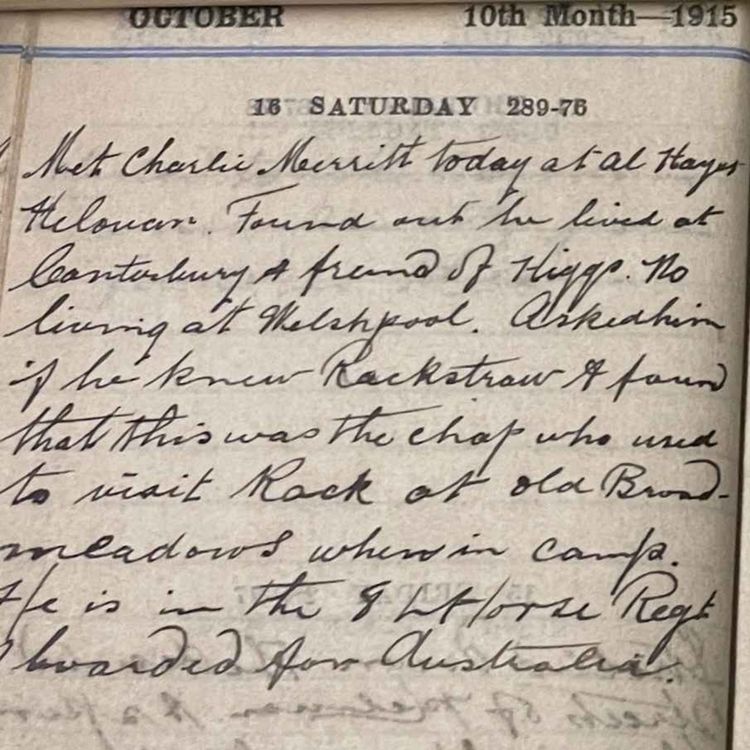 OCTOBER 10th Month—1915
16 SATURDAY 289-76
Met Charlie Merritt today at Al Hayat
Helouan. Found out he lived at
Canterbury & freind of Higgs. No
living at Welshpool. Asked him
if he knew Rackstraw & found
that this was the chap who used
to visit Rack at old Broad-
meadows when in camp.
He is in the 8 Lt Horse Regt
boarded for Australia.